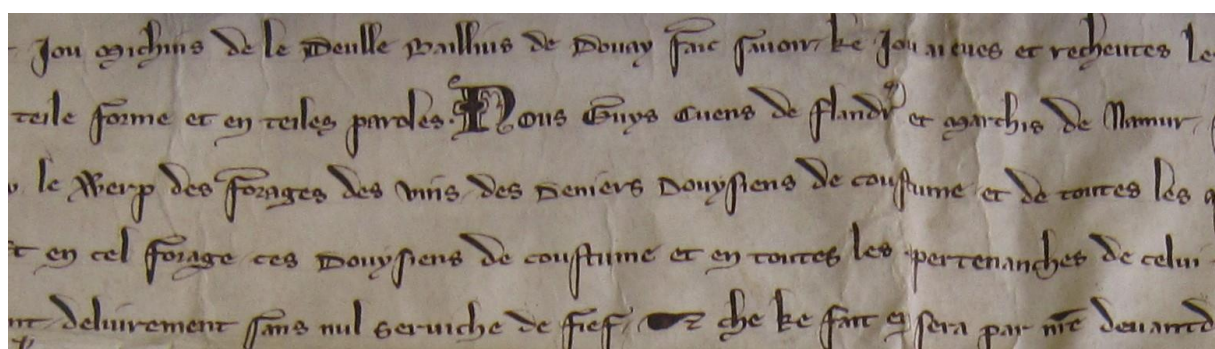 Jou Michius de le Deulle Baillius de Douay faic savoir ke Jou ai eues et recheutes le
teile forme et en teiles paroles. Nous Guys Cuens de flandr et Marchis de Namur
le Werp des forages des vins des Deniers Douysiens de coustume et de toutes les
en cel forage ces Douysiens de coustume et en toutes les pertenanches de celui
delivrement sans nul serviche de fief che ke fait en sera par me devant